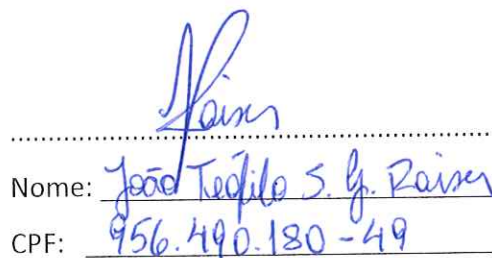 Raiser
Nome: João Teófilo S. G. Raiser
CPF: 956.490.180-49